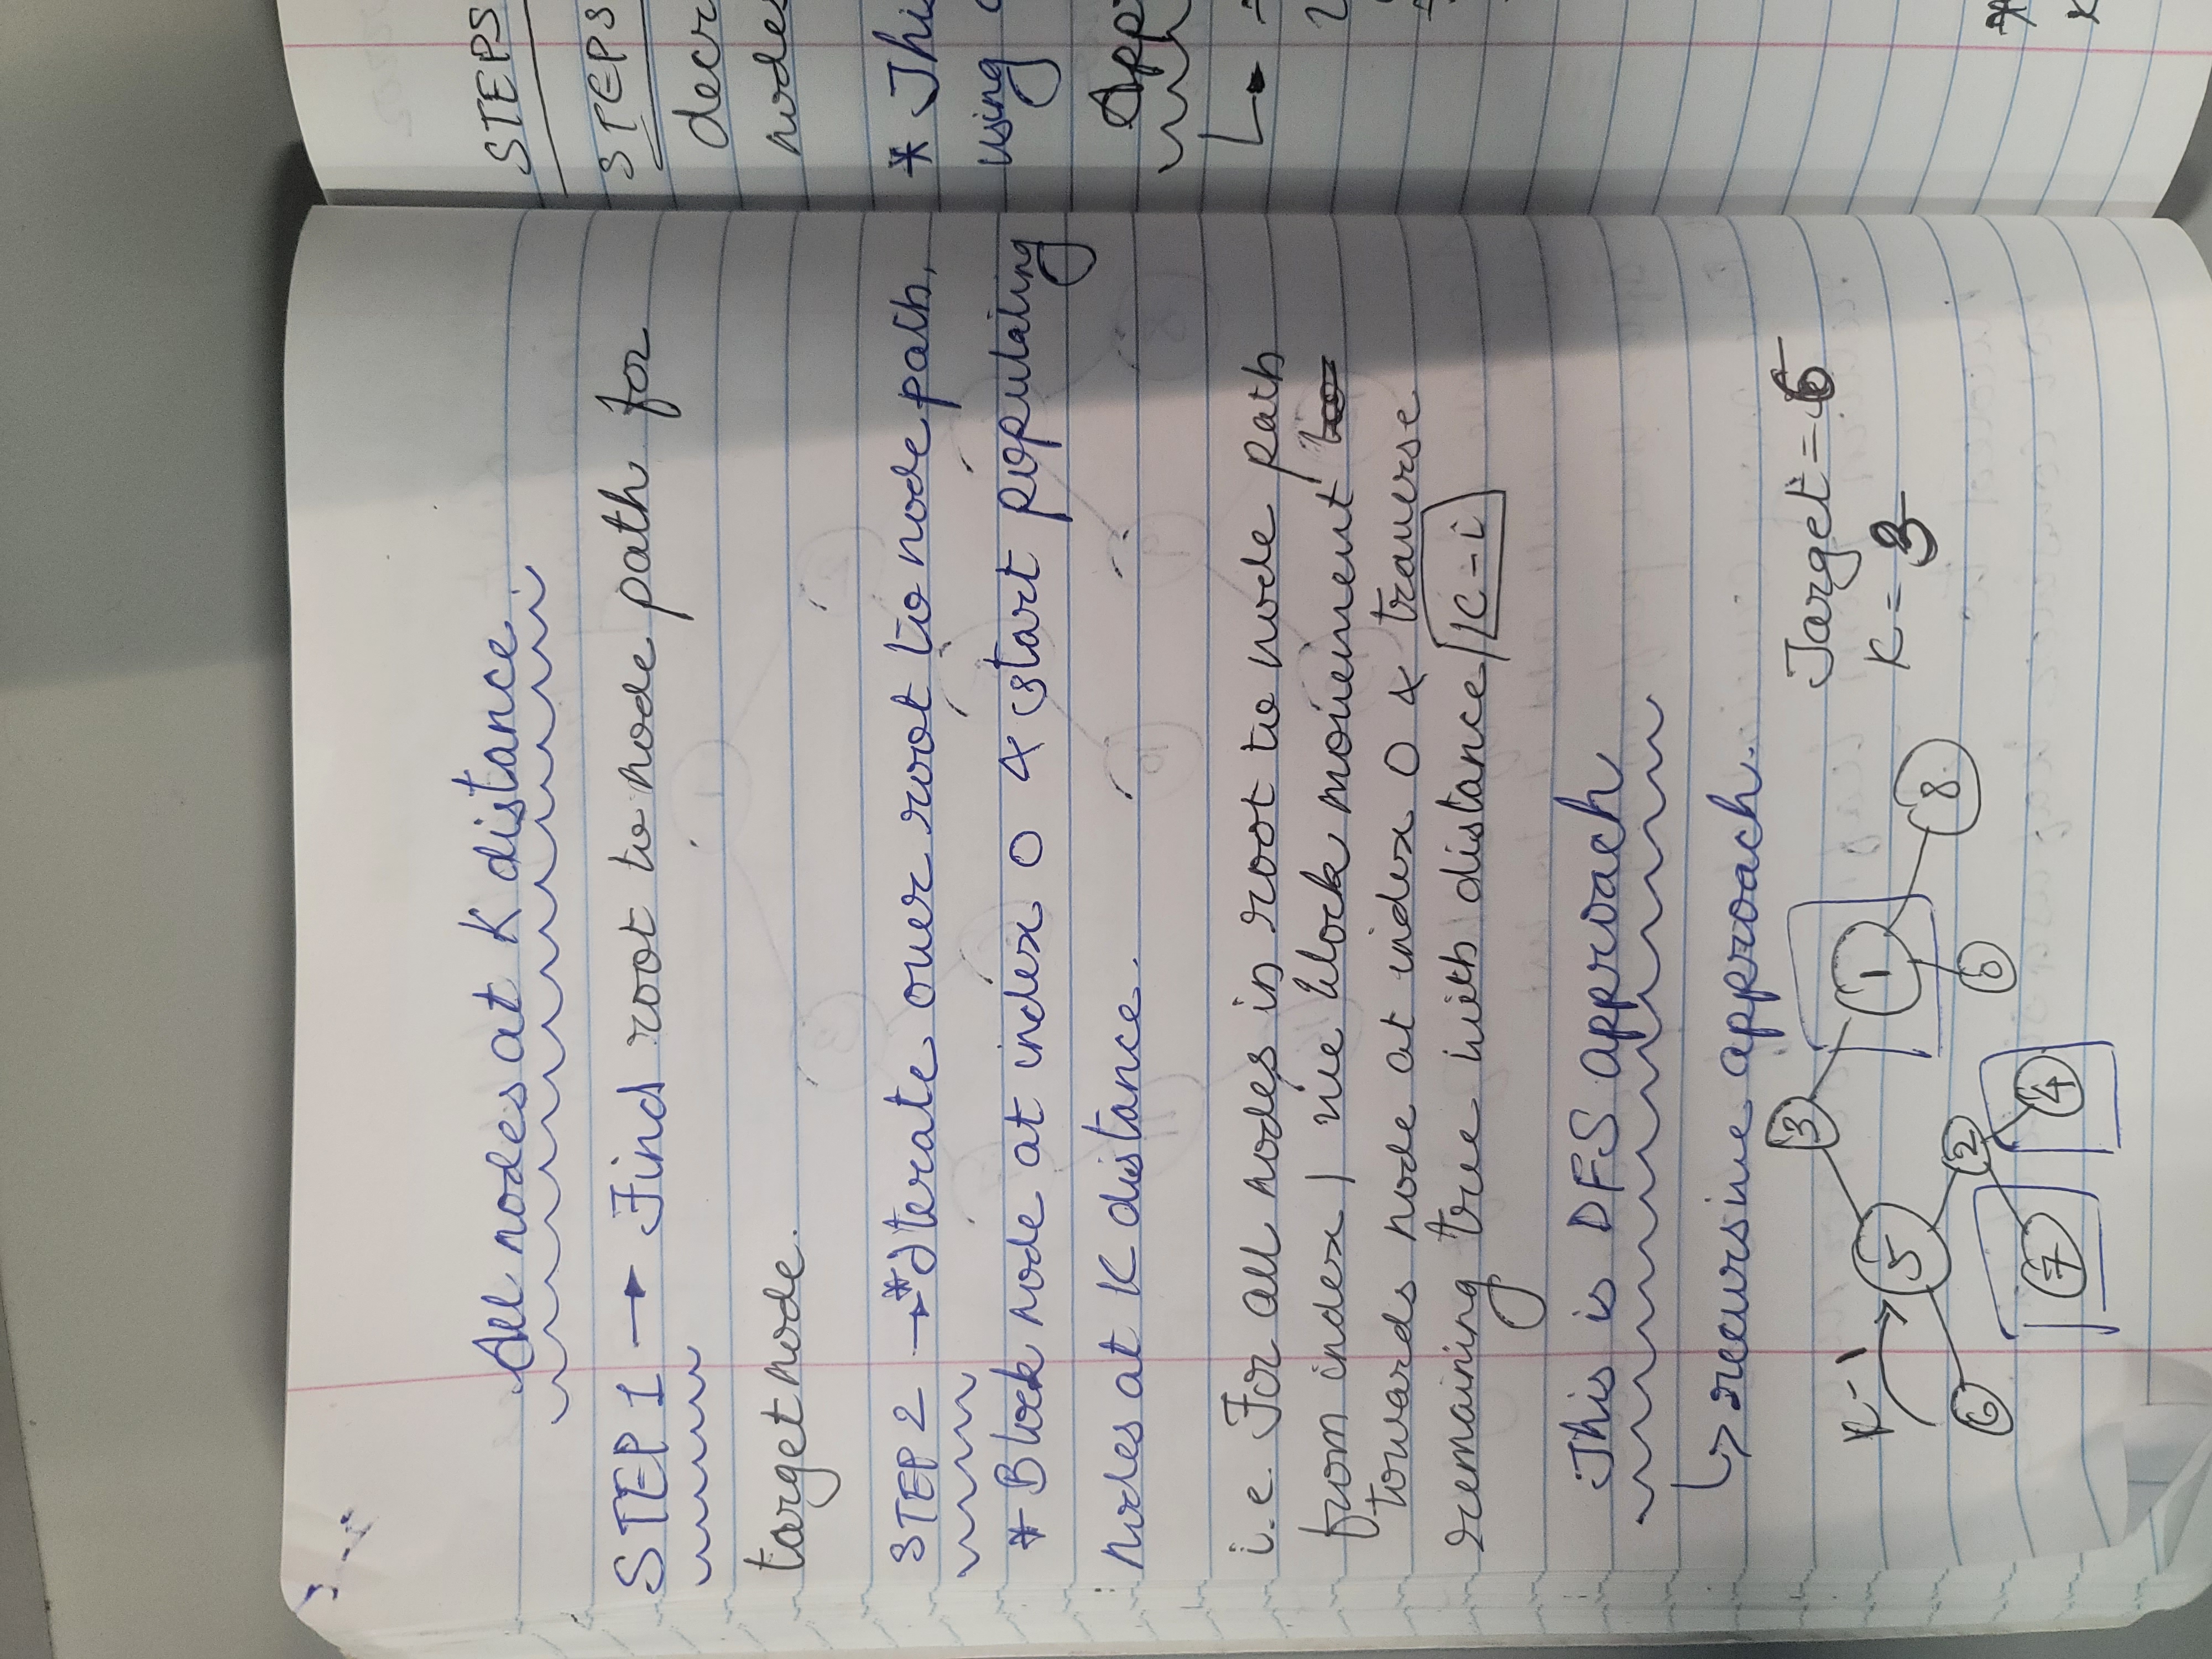 All nodes at K distance
STEP 1 → Find root to node path for
target node.
STEP 2 → * Iterate over root to node path,
* Block node at index 0 & start populating
nodes at K distance.
i.e For all nodes in root to node path
from index 1 we block movement
towards node at index 0 & traverse
remaining tree with distance K-i
This is DFS approach
↳ recursive approach.
Target = 6
K = 3
K-1
3
5
1
6
2
8
7
4
STEPS
STEPS
decr
nodes
* Thi
using
App